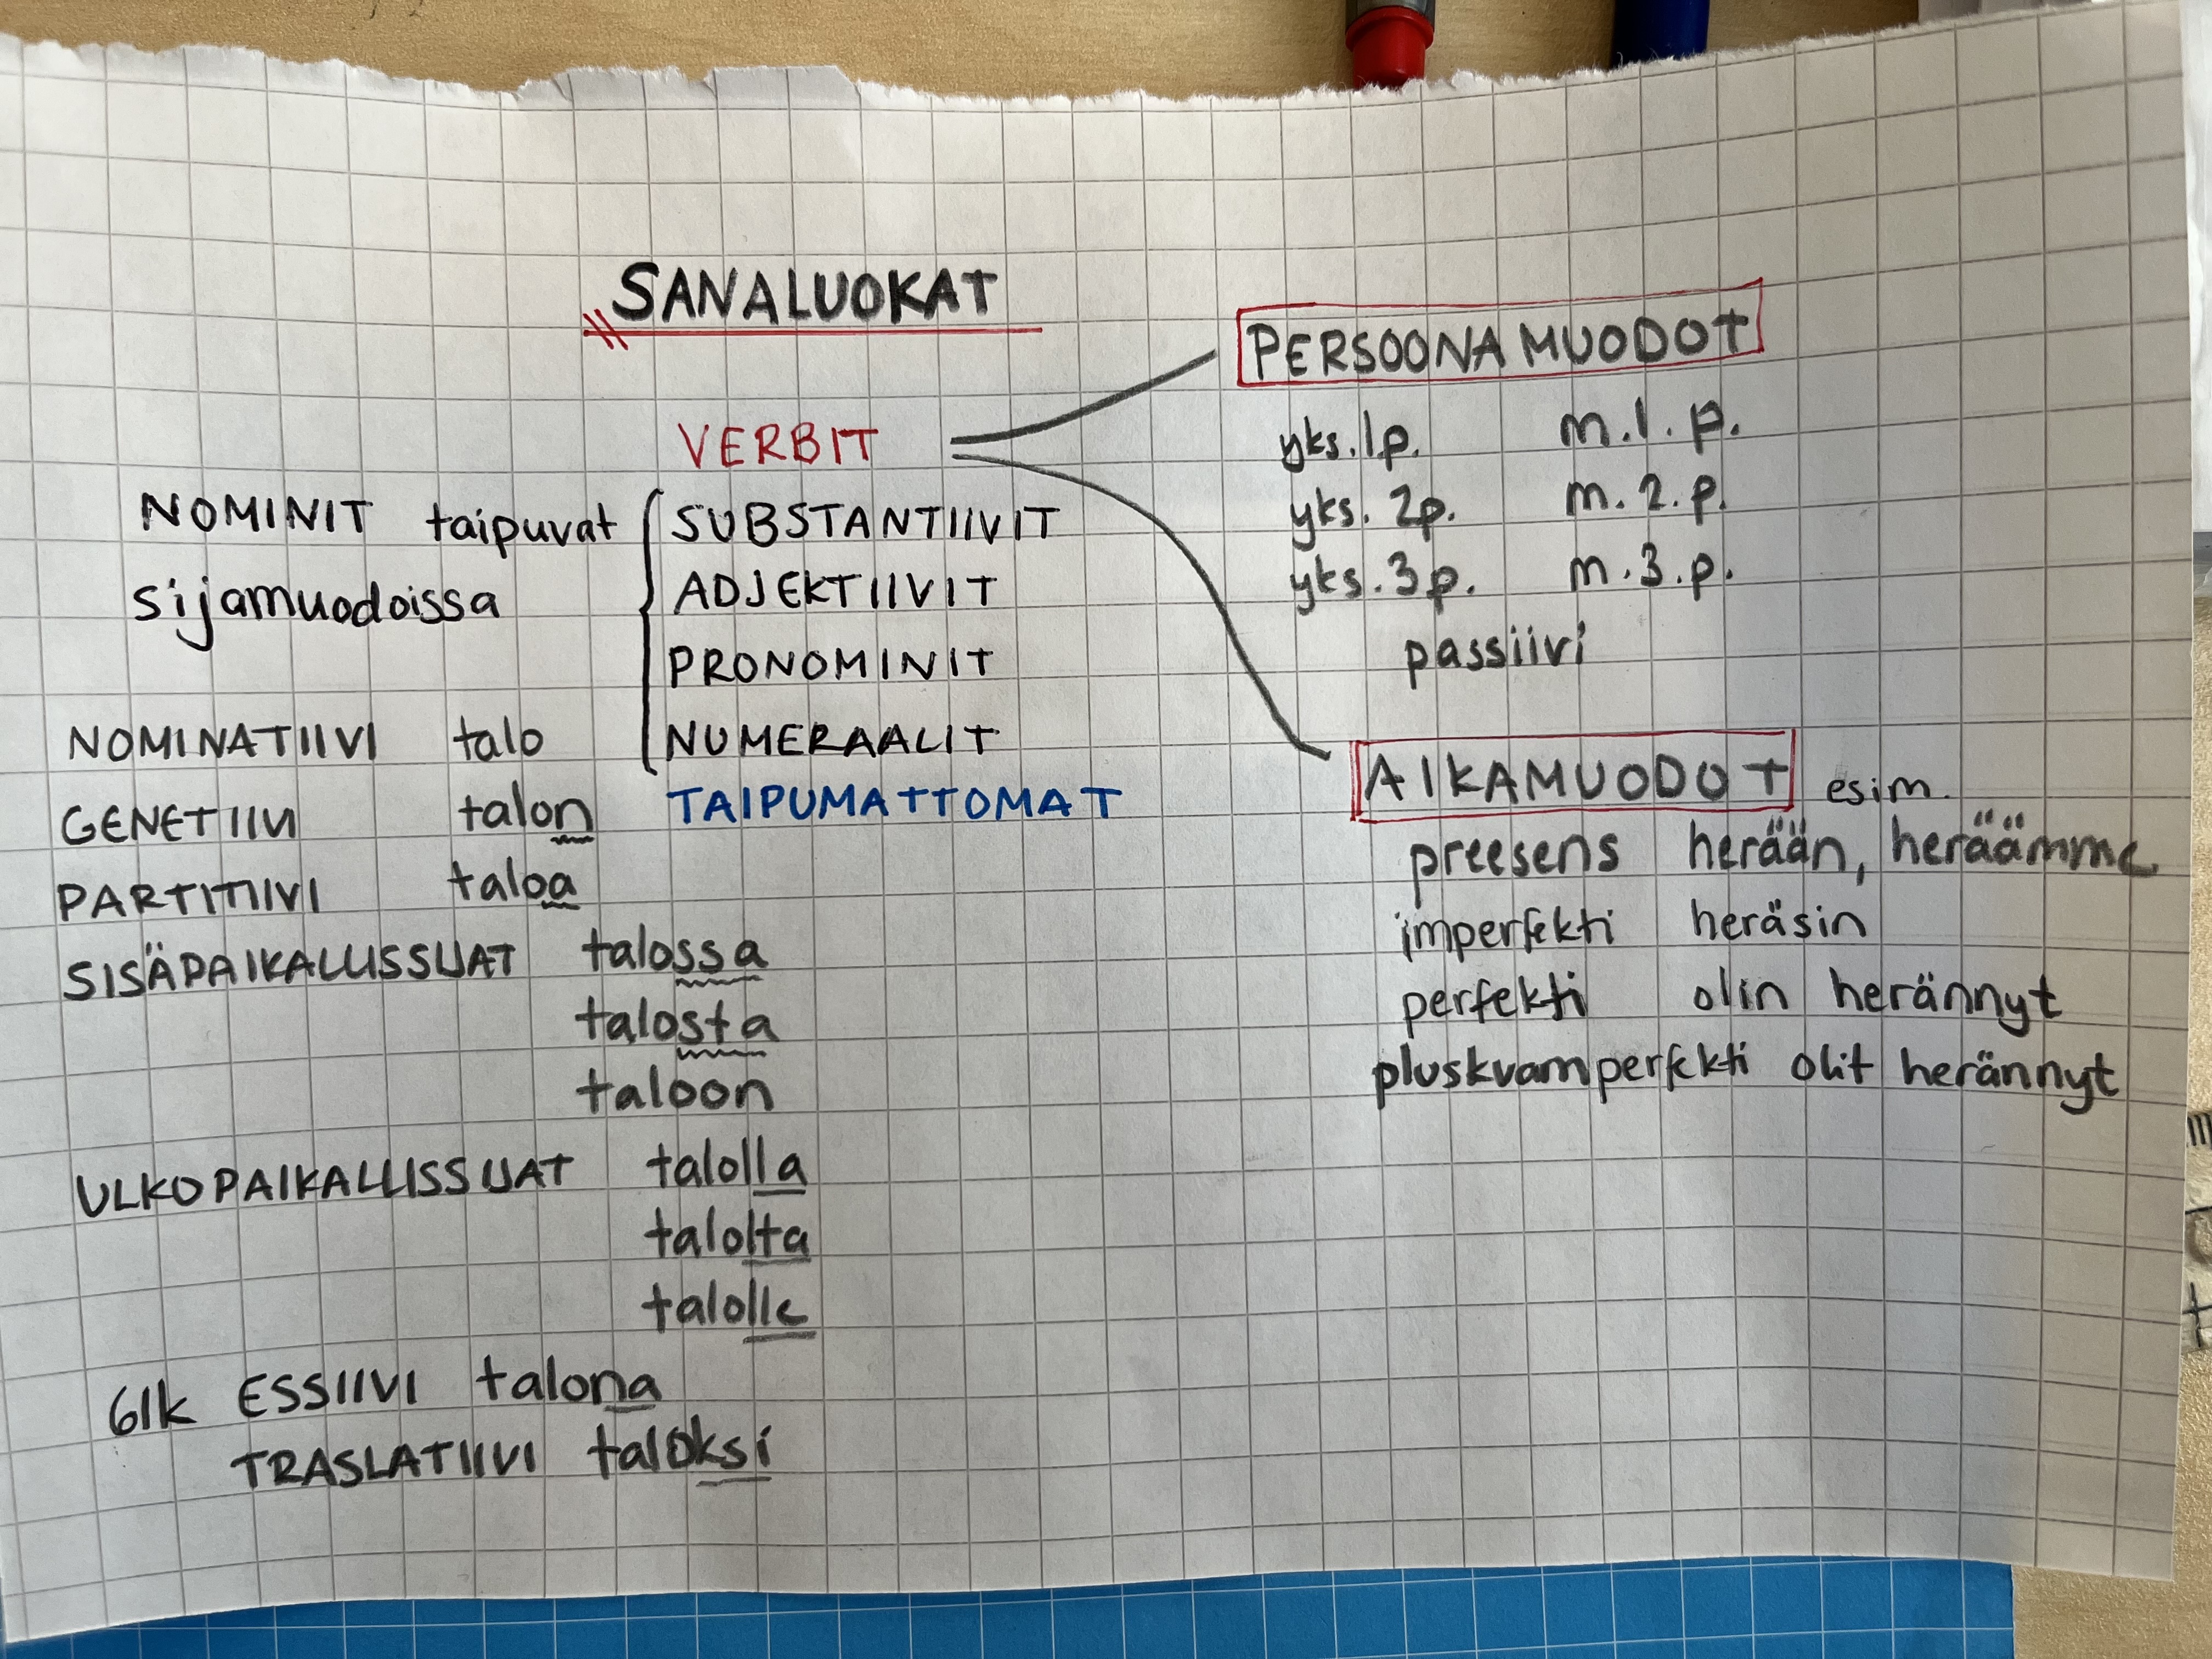 SANALUOKAT
VERBIT
NOMINIT taipuvat
sijamuodoissa
SUBSTANTIIVIT
ADJEKTIIVIT
PRONOMINIT
NUMERAALIT
TAIPUMATTOMAT
NOMINATIIVI talo
GENETIIVI talon
PARTITIIVI taloa
SISÄPAIKALLISSIJAT talossa
talosta
taloon
ULKOPAIKALLISSIJAT talolla
talolta
talolle
6lk ESSIIVI talona
TRASLATIIVI taloksi
PERSOONAMUODOT
yks. 1p. m. 1. p.
yks. 2p. m. 2. p.
yks. 3p. m. 3. p.
passiivi
AIKAMUODOT esim.
preesens herään, heräämme
imperfekti heräsin
perfekti olin herännyt
pluskvamperfekti olit herännyt